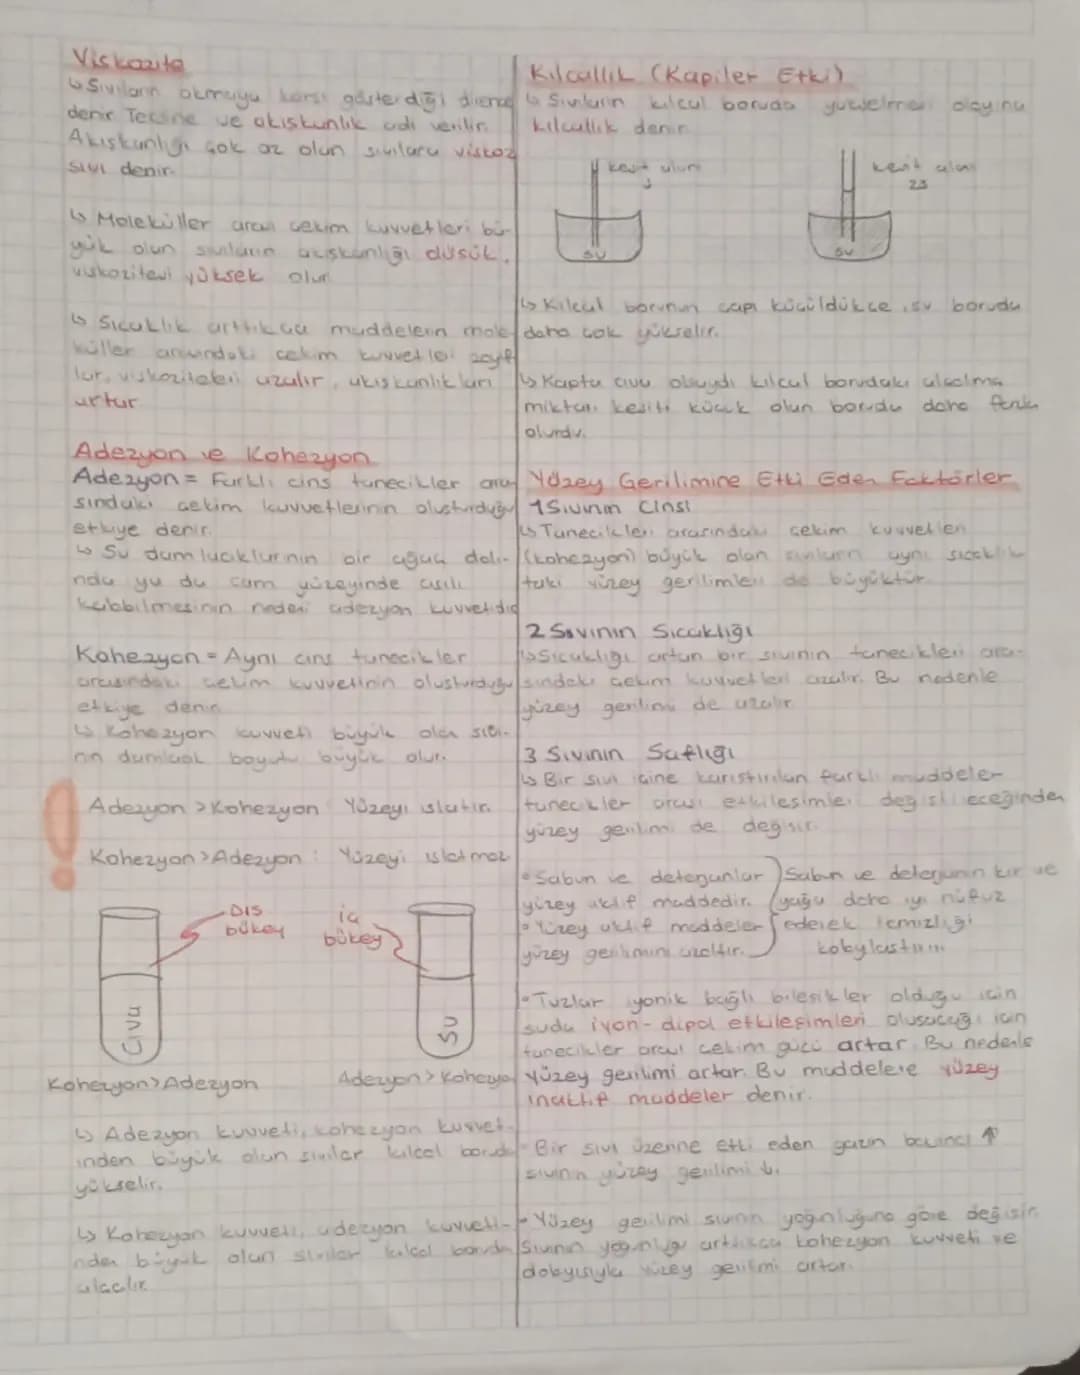 Viskozite
↳ Sıvıların akmaya karşı gösterdiği direnc
denir. Tersine ve akışkanlık adı verilir.
Akışkanlığı çok az olan sıvılara viskoz
sıvı denir.
↳ Moleküller arası çekim kuvvetleri bü-
yük olan sıvıların akışkanlığı düşük,
viskozitesi yüksek olur
↳ Sıcaklık arttıkça maddelerin mole-
küller arasındaki çekim kuvvetleri zayıf
lar, viskoziteleri azalır, akışkanlıkları
artar
Adezyon ve Kohezyon
Adezyon = Farklı cins tanecikler ara
sındaki çekim kuvvetlerinin oluşturduğu
etkiye denir.
↳ Su damlacıklarının bir ağaç dalı-
nda ya da cam yüzeyinde asılı
kalabilmesinin nedeni adezyon kuvvetidir
Kohezyon = Aynı cins tanecikler
arasındaki çekim kuvvetinin oluşturduğu
etkiye denir
↳ Kohezyon kuvveti büyük olan sıvı-
nın damlacık boyutu büyük olur.
Adezyon > Kohezyon : Yüzeyi ıslatır.
Kohezyon > Adezyon : Yüzeyi ıslatmaz
DIŞ
bükey
Civa
iç
bükey
Su
Kohezyon > Adezyon
Adezyon > Kohezyo
↳ Adezyon kuvveti, kohezyon kuvvet-
inden büyük olan sıvılar kılcal boruda
yükselir.
↳ Kohezyon kuvveti, adezyon kuvveti-
nden büyük olan sıvılar kılcal boruda
alçalır
Kılcallık (Kapiler Etki)
↳ Sıvıların kılcal boruda yükselmesi olayına
kılcallık denir
kesit alanı
S
su
kesit alanı
2S
su
↳ Kılcal borunun çapı küçüldükçe, su boruda
daha çok yükselir.
↳ Kapta cıva olsaydı kılcal borudaki alçalma
miktarı kesiti küçük olan boruda daha fazla
olurdu.
Yüzey Gerilimine Etki Eden Faktörler
1 Sıvının Cinsi
↳ Tanecikleri arasındaki çekim kuvvetleri
(kohezyon) büyük olan sıvıların aynı sıcaklık
taki yüzey gerilimleri de büyüktür.
2 Sıvının Sıcaklığı
↳ Sıcaklığı artan bir sıvının tanecikleri ara-
sındaki çekim kuvvetleri azalır. Bu nedenle
yüzey gerilimi de azalır
3 Sıvının Saflığı
↳ Bir sıvı içine karıştırılan farklı maddeler
tanecikler arası etkileşimleri değiştireceğinden
yüzey gerilimi de değişir.
• Sabun ve deterjanlar
yüzey aktif maddedir.
• Yüzey aktif maddeler
yüzey gerilimini azaltır.
Sabun ve deterjanın kir ve
yağa daha iyi nüfuz
ederek temizliği
kolaylaştırır.
• Tuzlar iyonik bağlı bileşikler olduğu için
suda iyon-dipol etkileşimleri oluşacağı için
tanecikler arası çekim gücü artar. Bu nedenle
yüzey gerilimi artar. Bu maddelere yüzey
inaktif maddeler denir.
• Bir sıvı üzerine etki eden gazın basıncı ↑
sıvının yüzey gerilimi ↓.
• Yüzey gerilimi sıvının yoğunluğuna göre değişir.
Sıvının yoğunluğu arttıkça kohezyon kuvveti ve
dolayısıyla yüzey gerilimi artar.